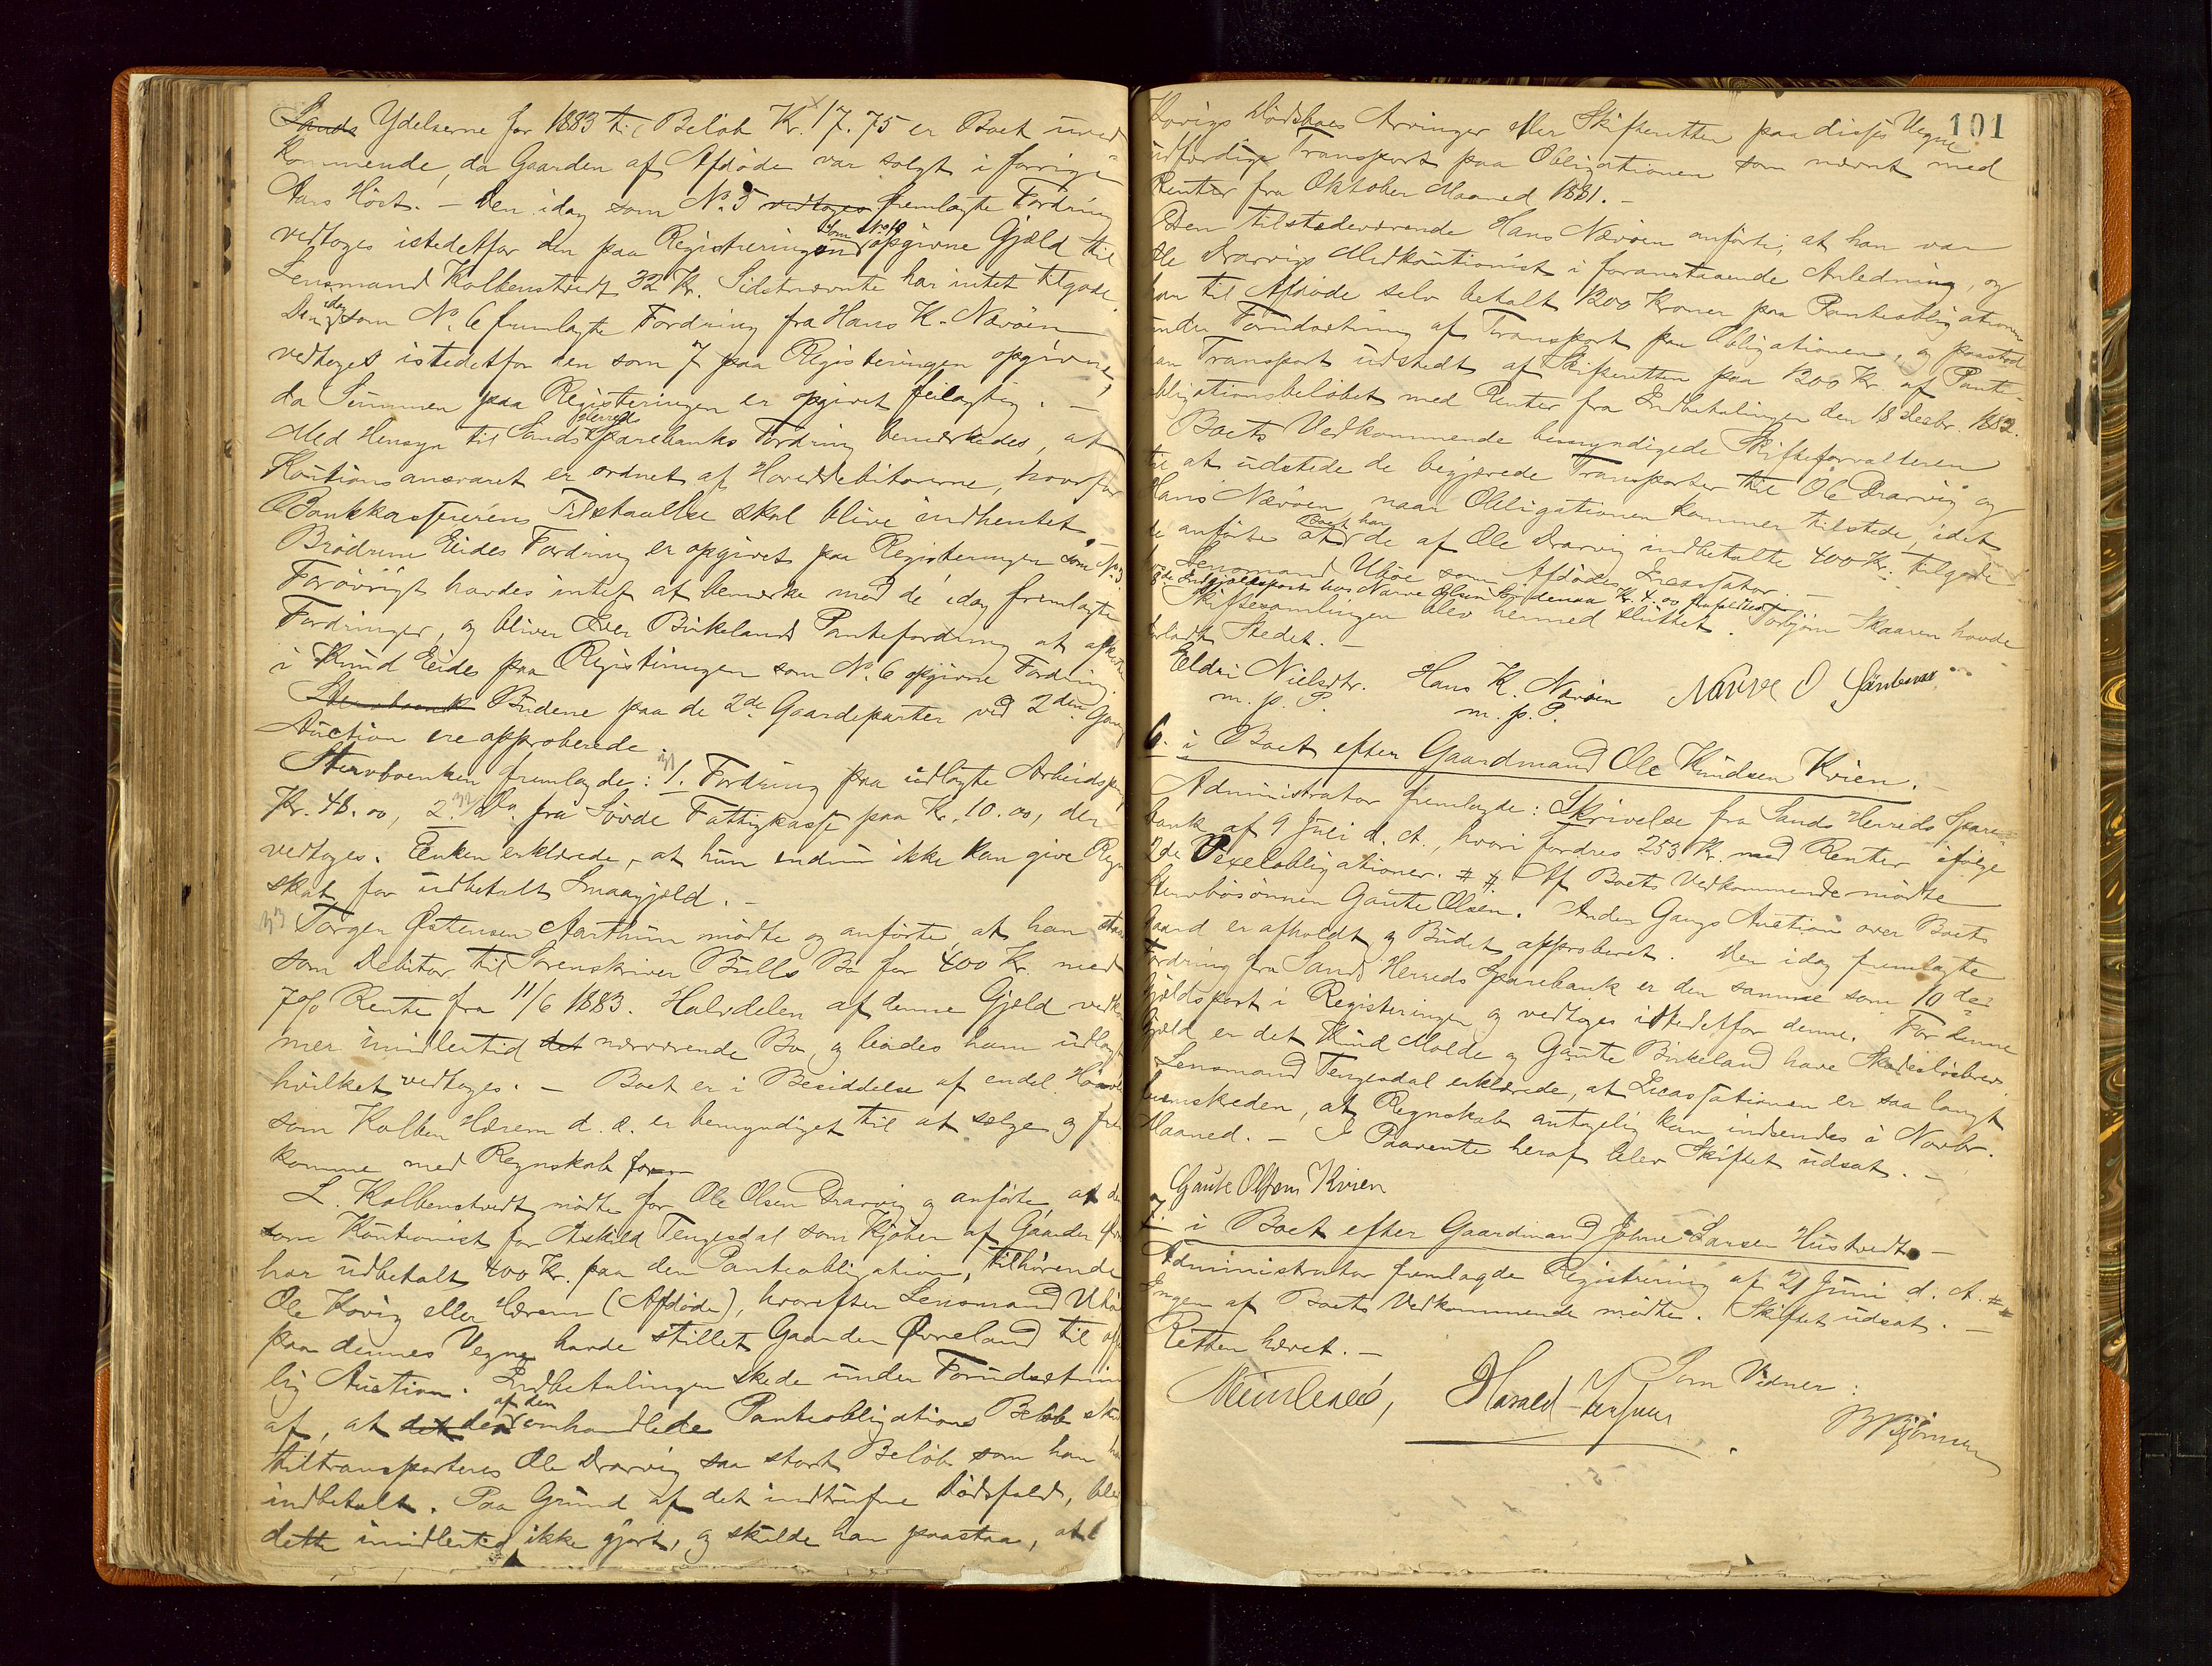 Sands Ydelserne for 1883 til Beløb Kr. 17.75 er Boet uved
kommende, da Gaarden af Afdøde var solgt i forrige
Aars Høst. – Den idag som No. 5 vedtoges fremlagte Fordring
vedtoges istedetfor den paa Registreringen som No. opgivne Gjæld til
Lensmand Kolbenstvedt 32 Kr. Sidstnævnte har intet tilgode.
Den idag som No. 6 fremlagte Fordring fra Hans K. Nævøen
vedtoges istedetfor den som 7 paa Registeringen opgivne,
da Summen paa Registeringen er opgivet feilagtig. –
Med Hensyn til Sands Herreds Sparebanks Fordring bemærkedes, at
Kautionsansvaret er ordnet af Hoveddebitorerne, hvorfor
Bankkassererens Tilstaaelse skal blive indhentet. –
Brødrene Eides Fordring er opgivet paa Registeringen som No. 3.
Forøvrigt havdes intet at bemærke med de idag fremlagte
Fordringer, og bliver Iver Birkelands Pantefordring at
i Knud Eides paa Registeringen som No. 6 opgivne Fordring.
Stervboenk Budene paa de 2de Gaardeparter ved 2den Gangs
Auction ere approberede.
Stervboenken fremlagde: 1. Fordring paa udlagte Arbeidspenge
Kr. 48.00, 2. Do. fra Søvde Fattigkasse paa Kr. 10.00, der
vedtoges. Enken erklærede, at hun endnu ikke kan give Regn
skab for udbetalt Smaagjæld. –
Torger Østensen Aarthun mødte og anførte, at han staar
som Debitor til Sorenskriver Bulls Bo for 400 Kr. med
7 o/o Rente fra 11/6 1883. Halvdelen af denne Gjæld vedkom
mer imidlertid det nærværende Bo, og beides ham udlagt
hvilket vedtoges. – Boet er i Besiddelse af endel
som Kolben Hærem d. æ. er bemyndiget til at sælge og frem
komme med Regnskab for
L. Kolbenstvedt mødte for Ole Olsen Drarvig og anførte, at den
som Kautionist for Askild Tengesdal som Kjøber af Gaarden
har udbetalt 400 Kr. paa den Panteobligation, tilhørende
Ole Hovig eller Hærem (Afdøde), hvorefter Lensmand Utøe
paa dennes Vegne havde stillet Gaarden Øvreland til offent
lig Auction. Indbetalingen skede under Forudsætning
af, at det der af den omhandlede Panteobligations Beløb skulde
tiltransporteres Ole Drarvig saa stort Beløb som han har
indbetalt. Paa Grund af det indtrufne Dødsfald, blev
dette imidlertid ikke gjort, og skulde han paastaa, at
101
Hovigs Dødsboes Arvinger eller Skifteretten paa disses Vegne
udfærdige Transport paa Obligationen som nævnt med
Renter fra Oktober Maaned 1881. –
Den tilstedeværende Hans Nævøen anførte, at han var
Ole Drarvigs Medkautionist i foranstaaende Anledning, og
har til Afdøde selv betalt 1200 Kroner paa Panteobligationen
under Forudsætning af Transport paa Obligationen, og paastod
han Transport udstedt af Skifteretten paa 1200 Kr. af Pante-
obligationsbeløbet med Renter fra Indbetalingen den 18 Desbr. 1882.
Boets Vedkommende bemyndigede Skifteforvalteren
til at udstede de begjærede Transporter til Ole Drarvig og
Hans Nævøen naar Obligationen kommer tilstede, idet
de anførte at Boet har de af Ole Drarvig indbetalte 400 Kr. tilgode
Lensmand Utøe som Afdødes Incassator. –
8de Indgjældspost hos Narve Olsen
Skiftesamlingen blev hermed sluttet. Torbjørn Skaaren havde
forladt Stedet. –
Eldri Nielsdtr. Hans K. Nævøen Narve O
m. p. P. m. p. P.
6. i Boet efter Gaardmand Ole Knudsen Kvien. –
Administrator fremlagde: Skrivelse fra Sands Herreds Spare-
bank af 9 Juli d. A., hvori fordres 253 Kr. med Renter ifølge
2de Vexelobligationer. # # Af Boets Vedkommende mødte
Stervbosønnen Gaute Olsen. Anden Gangs Auction over Boets
Gaard er afholdt og Budet approberet. Den idag fremlagte
Fordring fra Sands Herreds Sparebank er den samme som 10de
Gjældspost i Registeringen og vedtoges istedetfor denne. For denne
Gjæld er det Knud Molde og Gaute Birkeland have Skadesløsbrev.
Lensmand Tengesdal erklærede, at Incassationen er saa langt
fremskreden, at Regnskab antagelig kan indsendes i Novbr.
Maaned. – I Paavente heraf blev Skiftet udsat. –
Gaute Olsen Kvien
7. i Boet efter Gaardmand Johne Larsen Hustvedt –
Administrator fremlagde Registrering af 21 Juni d. A. # #
Ingen af Boets Vedkommende mødte. Skiftet udsat. –
Retten hævet. –
Som Vidner:
Harald
B Bjørnsen